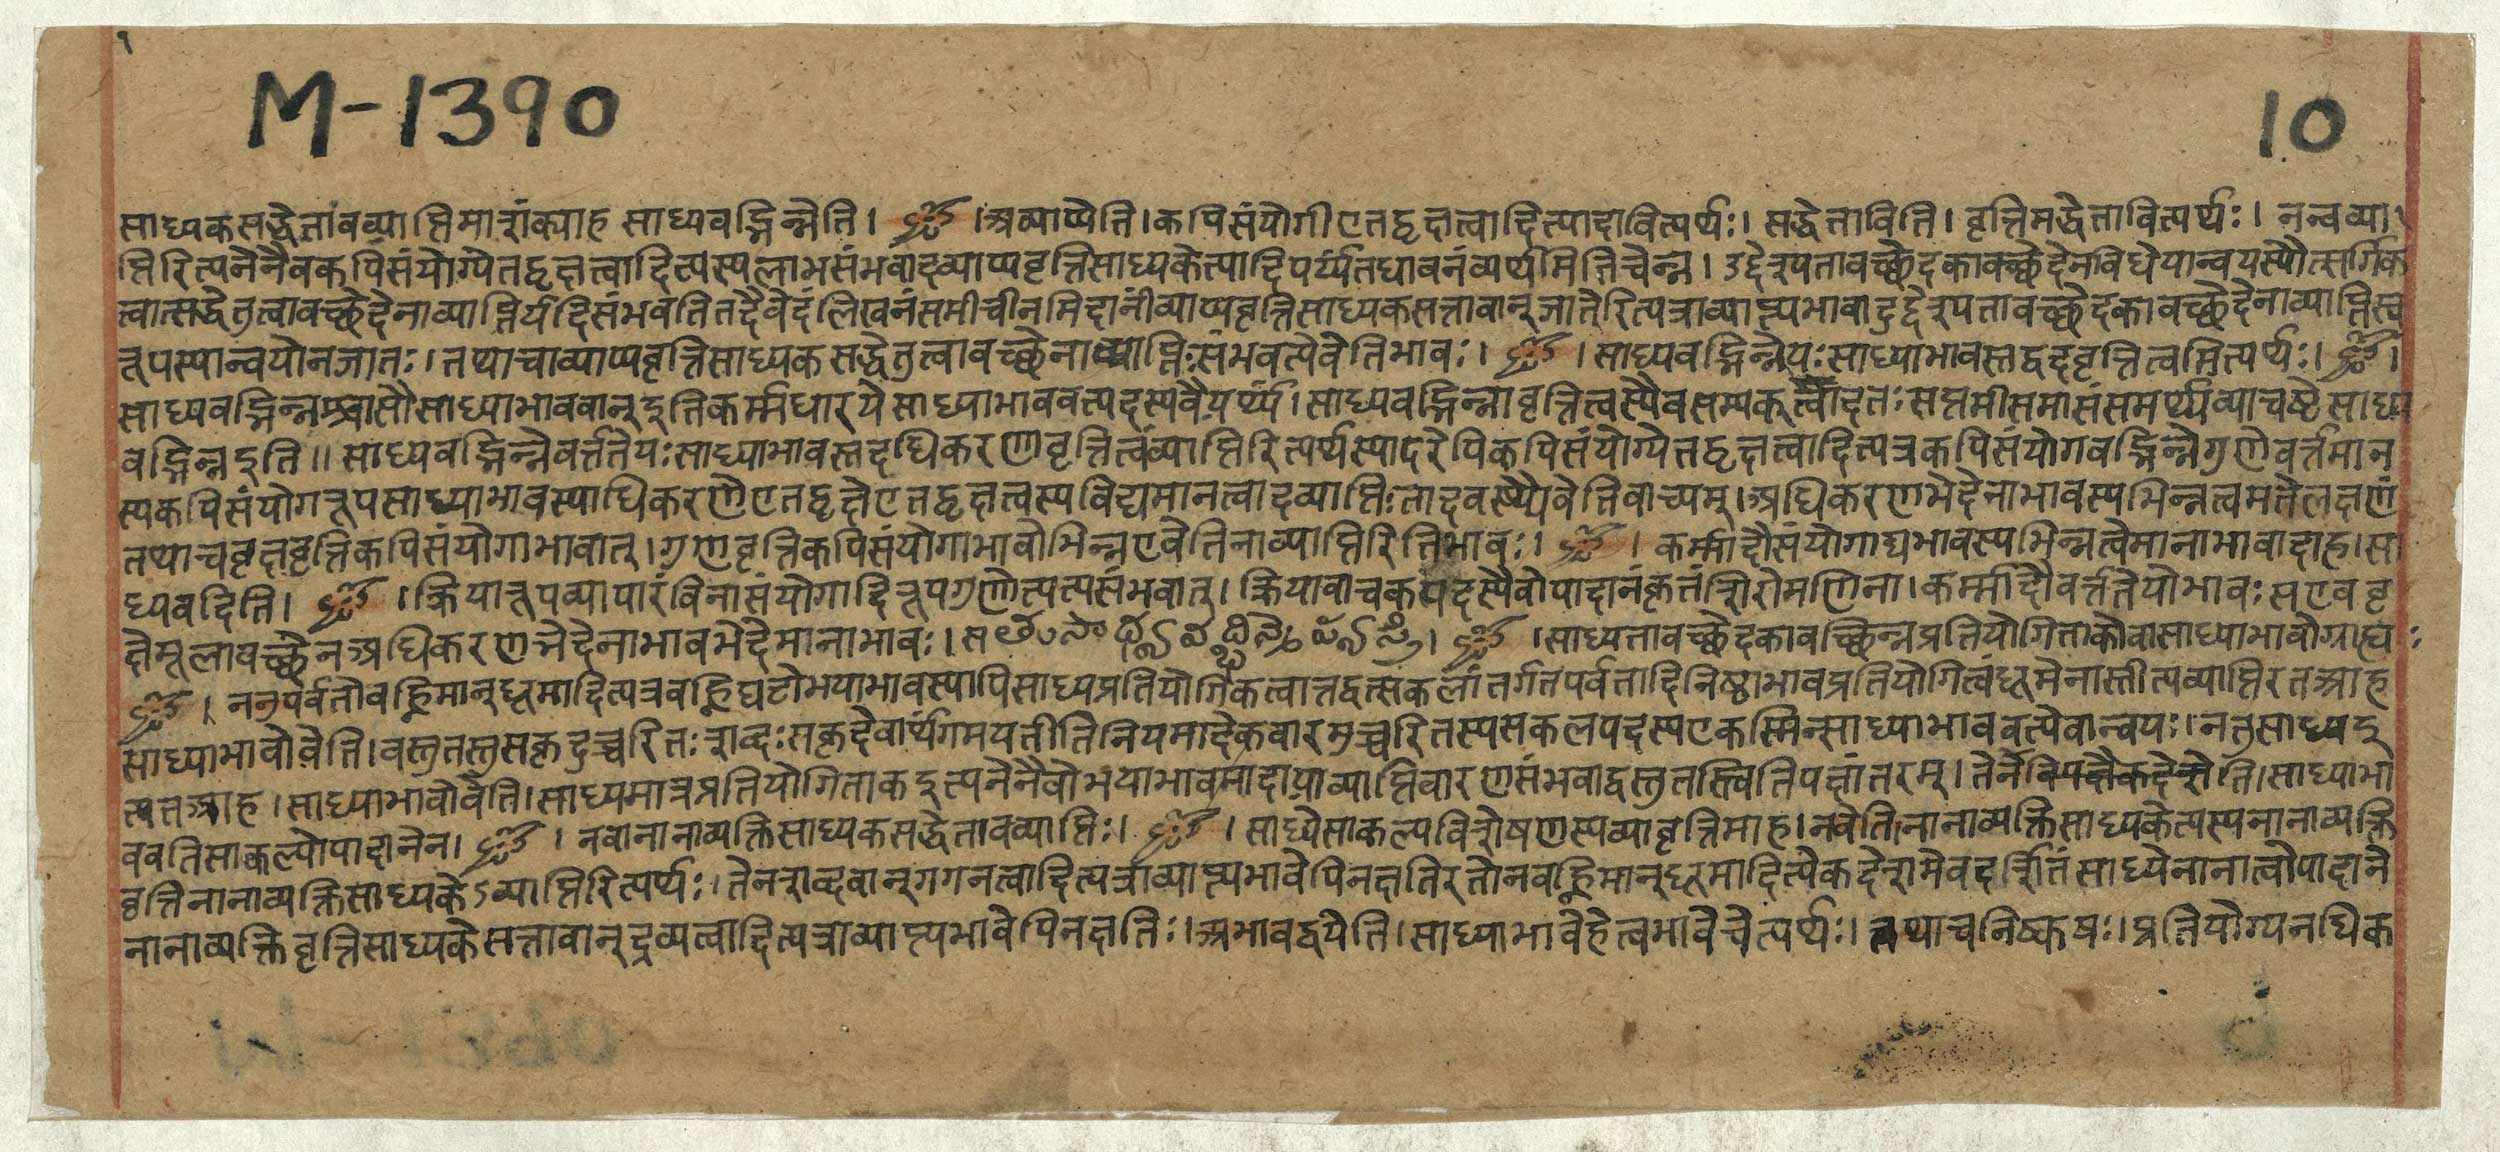 १
M-1390
10
साध्यकसद्धेतांवव्याप्तिमाशंक्याह साध्यवद्भिन्नेति। । अव्याप्येति। कपिसंयोगीएतद्वृक्षत्वादित्यादावित्यर्थः। सद्धेताविति। वृत्तिमद्धेतावित्यर्थः। नन्वव्या
प्तिरित्यनेनैवकपिसंयोग्येतद्वृक्षत्वादित्यस्यलाभसंभवादव्याप्यवृत्तिसाध्यकेत्यादिपर्य्यंतधावनंव्यर्थमितिचेन्न। उद्देश्यतावच्छेदकावच्छेदेनविधेयान्वयस्यौत्सर्गिक
त्वात्सद्धेतुत्वावच्छेदेनाव्याप्तिर्यदिसंभवतितदैवेदंलिखनंसमीचीनमिदानींव्याप्यवृत्तिसाध्यकसत्तावान्जातेरित्यत्राव्याप्त्यभावादुद्देश्यतावच्छेदकावच्छेदेनाव्याप्तित्व
रूपस्यान्वयोनजातः। तथाचाव्याप्यवृत्तिसाध्यकसद्धेतुत्वावच्छेनाव्याप्तिःसंभवत्येवेतिभावः। । साध्यवद्भिन्नेयःसाध्याभावस्तद्वदवृत्तित्वमित्यर्थः। ।
साध्यवद्भिन्नश्चासौसाध्याभाववान्इतिकर्म्मधारयेसाध्याभाववत्पदस्यवैयर्थ्यं। साध्यवद्भिन्नावृत्तित्वस्यैवसम्यक्त्वादतःसप्तमीसमासंसमर्थ्यव्याचष्टेसाध्य
वद्भिन्नइति॥ साध्यवद्भिन्नेवर्त्ततेयःसाध्याभावस्तदधिकरणावृत्तित्वंव्याप्तिरित्यर्थस्यादरेपिकपिसंयोग्येतद्वृक्षत्वादित्यत्रकपिसंयोगवद्भिन्नेगुणेवर्त्तमान
स्यकपिसंयोगरूपसाध्याभावस्याधिकरणेएतद्वृक्षेएतद्वृक्षत्वस्यविद्यमानत्वादव्याप्तिःतादवस्थ्यैवेतिवाच्यम्। अधिकरणभेदेनाभावस्यभिन्नत्वमतेलक्षणं
तथाचवृक्षवृत्तिकपिसंयोगाभावात्। गुणवृत्तिकपिसंयोगाभावोभिन्नएवेतिनाव्याप्तिरितिभावः। । कर्म्मादौसंयोगाद्यभावस्यभिन्नत्वेमानाभावादाह। सा
ध्यवदिति। । क्रियारूपव्यापारंविनासंयोगादिरूपगुणोत्पत्त्यसंभवात्। क्रियावाचकपदस्यैवोपादानंकृतंशिरोमणिना। कर्म्मादौवर्त्ततेयोभावःसएववृ
क्षेमूलावच्छेनअधिकरणभेदेनाभावभेदेमानाभावः। । साध्यतावच्छेदकावच्छिन्नप्रतियोगिताकोवासाध्याभावोग्राह्यः
। ननुपर्वतोवह्निमान्धूमादित्यत्रवह्निघटोभयाभावस्यापिसाध्यप्रतियोगिकत्वात्तद्वत्सकलांतर्गतपर्वतादिनिष्ठाभावप्रतियोगित्वंधूमेनास्तीत्यव्याप्तिरतआह
साध्याभावोवेति। वस्तुतस्तुसकृदुच्चरितःशब्दःसकृदेवार्थंगमयतीतिनियमादेकवारमुच्चरितस्यसकलपदस्यएकस्मिन्साध्याभाववत्येवान्वयः। नतुसाध्यइ
त्यतआह। साध्याभावोवेति। साध्यमात्रप्रतियोगिताकइत्यनेनैवोभयाभावमादायाव्याप्तिवारणसंभवाद्वस्तुतस्त्वितिपक्षांतरम्। तेनविपक्षैकदेशेति। साध्याभा
ववतिसाकल्योपादानेन। । नवानानाव्यक्तिसाध्यकसद्धेतावव्याप्तिः। । साध्येसाकल्यविशेषणस्यव्यावृत्तिमाह। नवेति। नानाव्यक्तिसाध्यकेत्यस्यनानाव्यक्ति
वृत्तिनानाव्यक्तिसाध्यकेऽव्याप्तिरित्यर्थः। तेनशब्दवान्गगनत्वादित्यत्राव्याप्त्यभावेपिनक्षतिरतोनवह्निमान्धूमादित्येकदेशमेवदर्शितंसाध्येनानात्वोपादाने
नानाव्यक्तिवृत्तिसाध्यकेसत्तावान्द्रव्यत्वादित्यत्राव्याप्त्यभावेपिनक्षतिः। अभावद्वयेति। साध्याभावेहेत्वभावेचेत्यर्थः। तथाचनिष्कर्षः। प्रतियोग्यनधिक